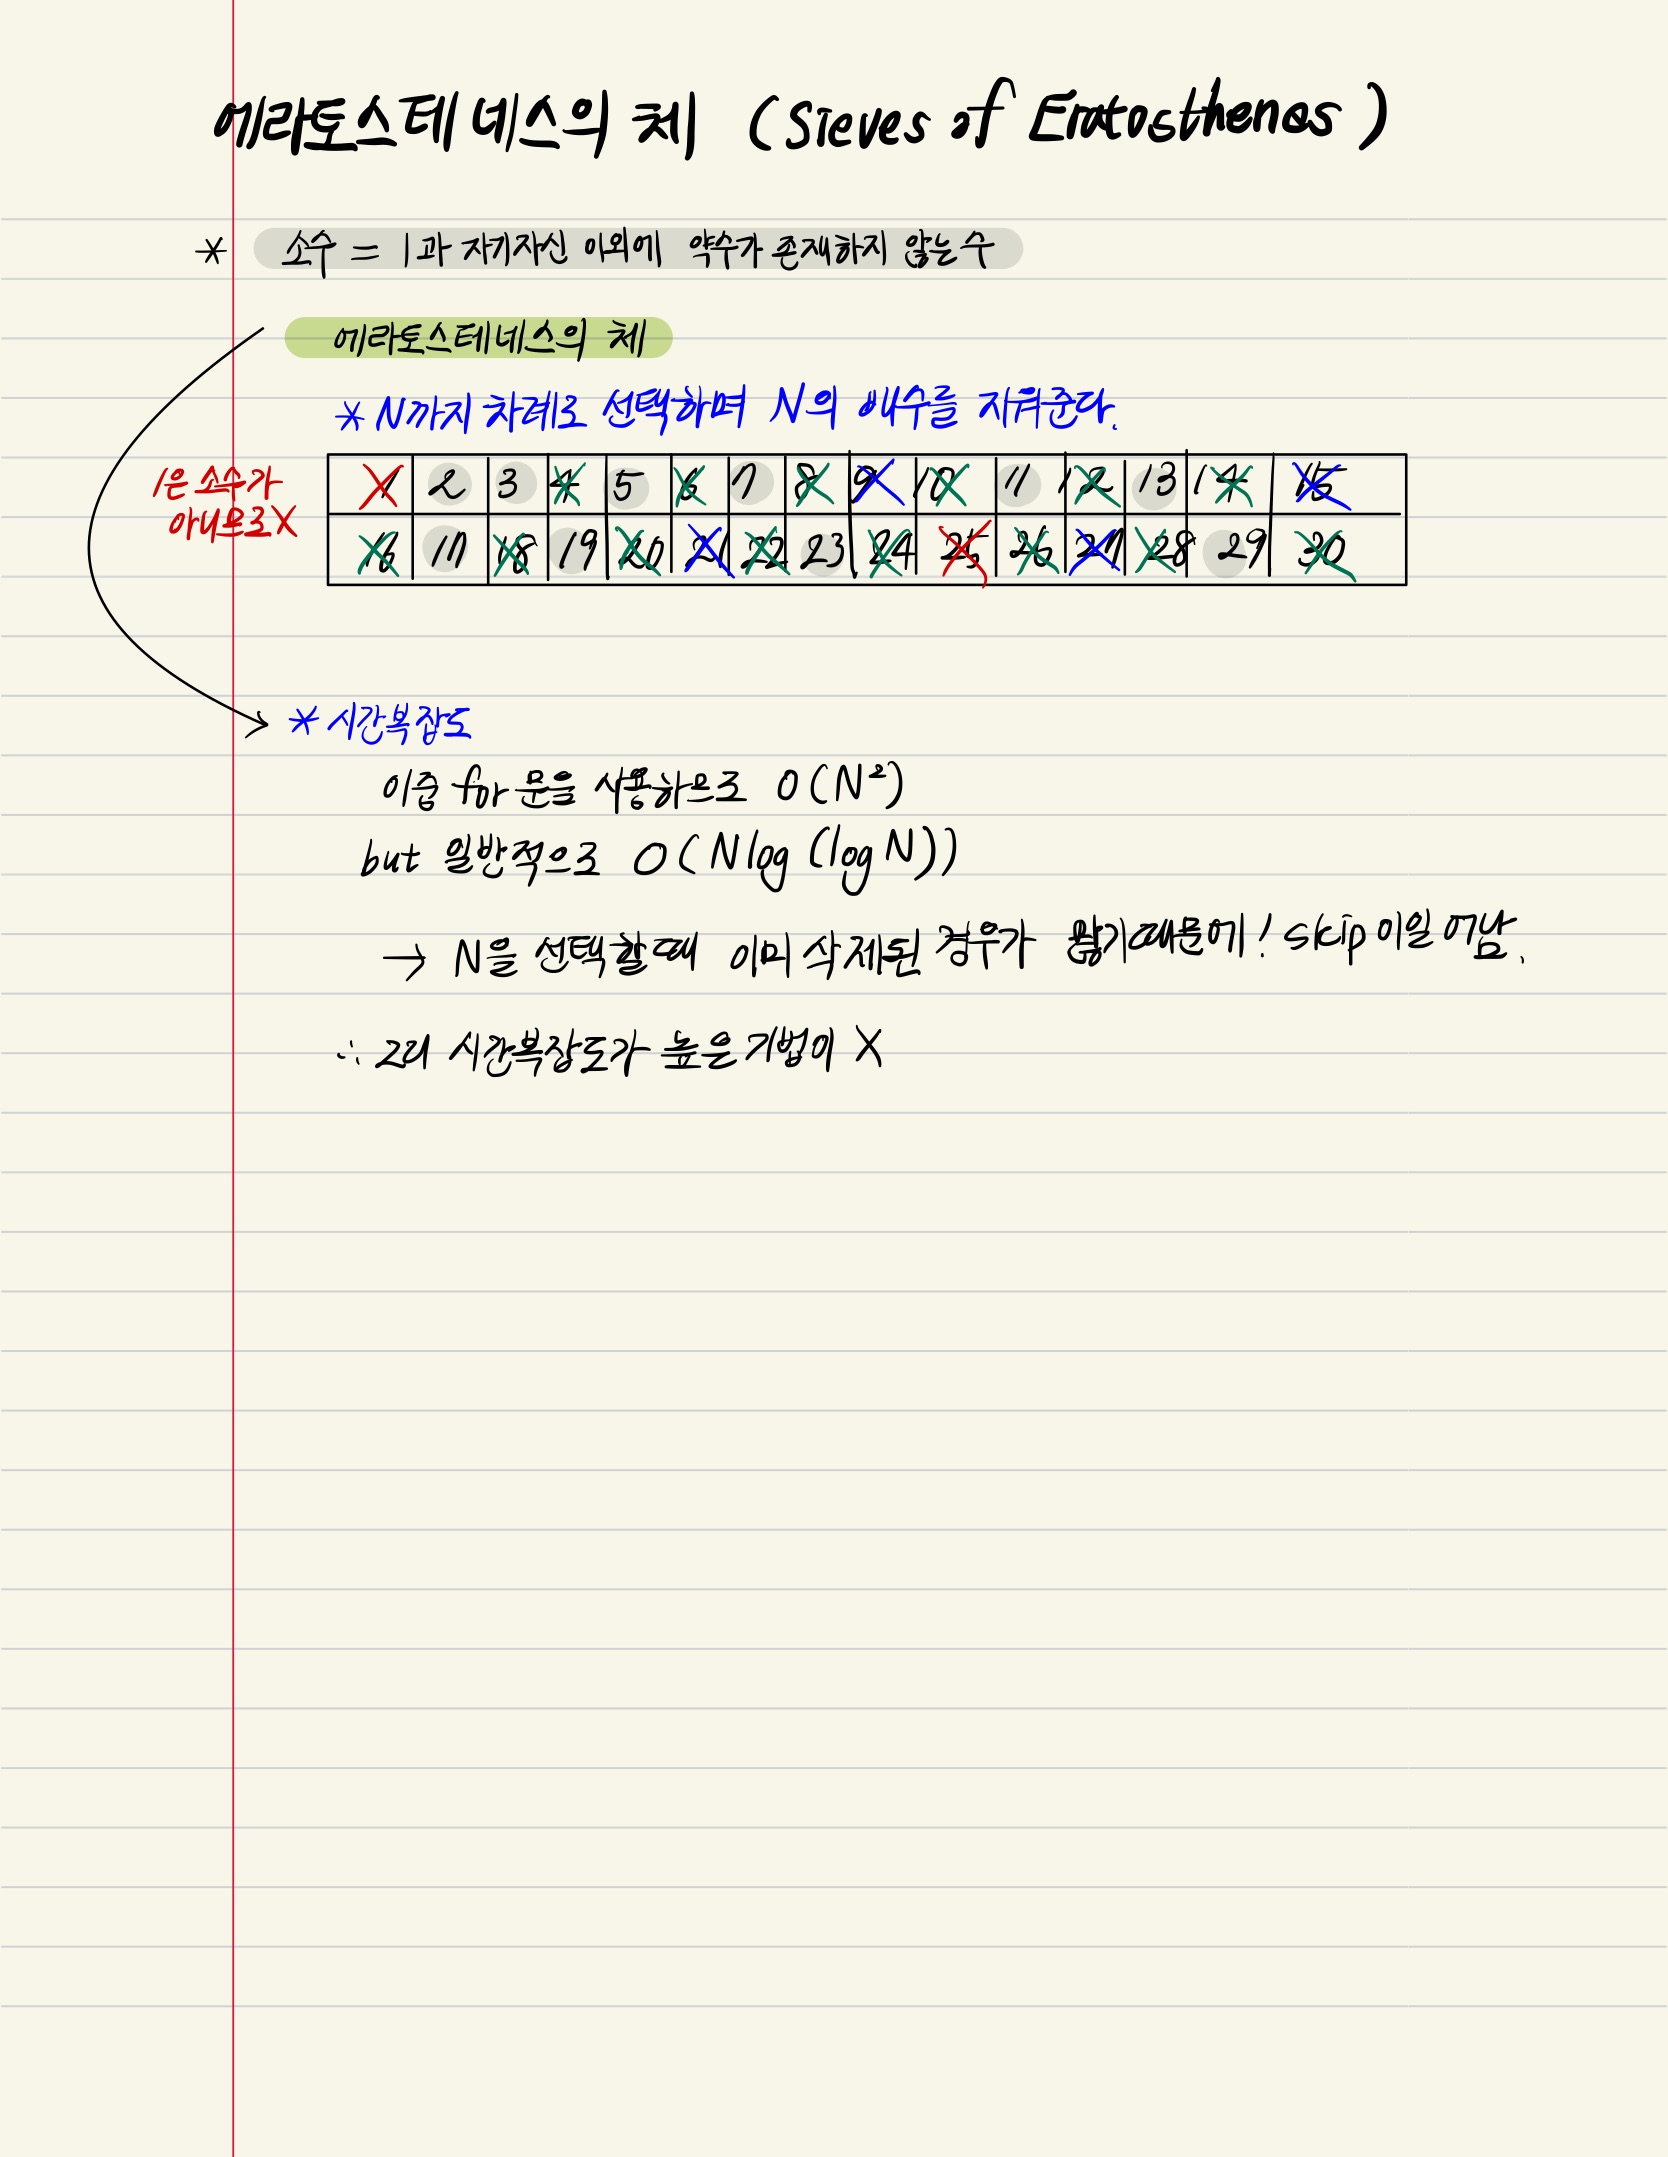 에라토스테네스의 체 (Sieves of Eratosthenes)
* 소수 = 1과 자기자신 이외에 약수가 존재하지 않는수
에라토스테네스의 체
* N까지 차례로 선택하며 N의 배수를 지워준다.
1은 소수가
아니므로 X
1 2 3 4 5 6 7 8 9 10 11 12 13 14 15
16 17 18 19 20 21 22 23 24 25 26 27 28 29 30
* 시간복잡도
이중 for 문을 사용하므로 O(N²)
but 일반적으로 O(Nlog(logN))
→ N을 선택할때 이미 삭제된 경우가 많기때문에! skip이일어남.
∴ 그리 시간복잡도가 높은 기법이 X